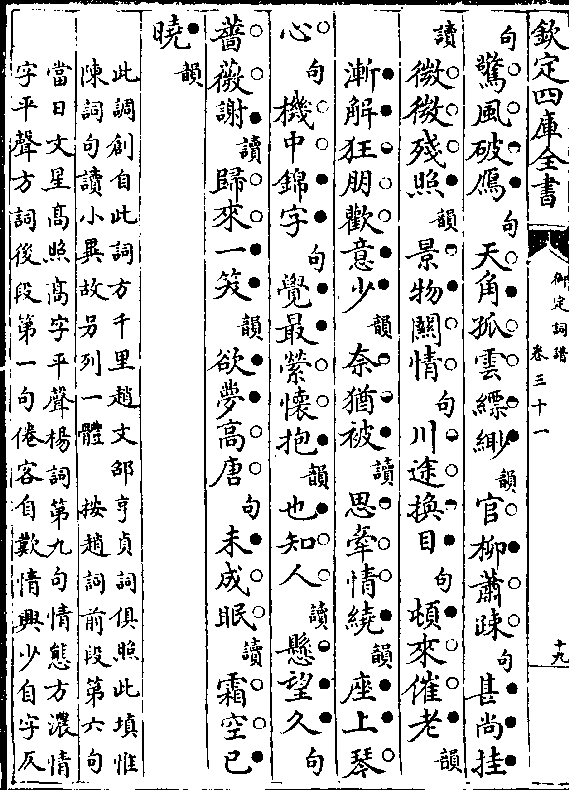 欽定四庫全書
御定詞譜 卷三十一
十九
句驚風破鴈句天角孤雲縹緲韻官柳蕭疎句甚尚挂
讀微微殘照韻景物關情句川途換目句頓來催老韻
漸解狂朋歡意少韻奈猶被讀思牽情繞韻座上琴
心句機中錦字句覺最縈懷抱韻也知人讀懸望久句
薔薇謝讀歸來一笑韻欲夢高唐句未成眠讀霜空已
曉韻
此調創自此詞方千里趙文邵亨貞詞俱照此填惟
陳詞句讀小異故另列一體 按趙詞前段第六句
當日文星高照高字平聲楊詞第九句情態方濃情
字平聲方詞後段第一句倦客自歎情興少自字仄